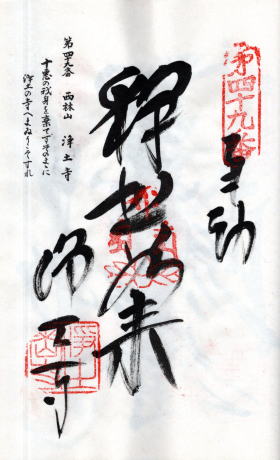 第四十九番
奉拝
釋迦如来
浄土寺
第四十九番　西林山　浄土寺
十悪の我身を棄てずそのままに
浄土の寺へまゐりこそすれ